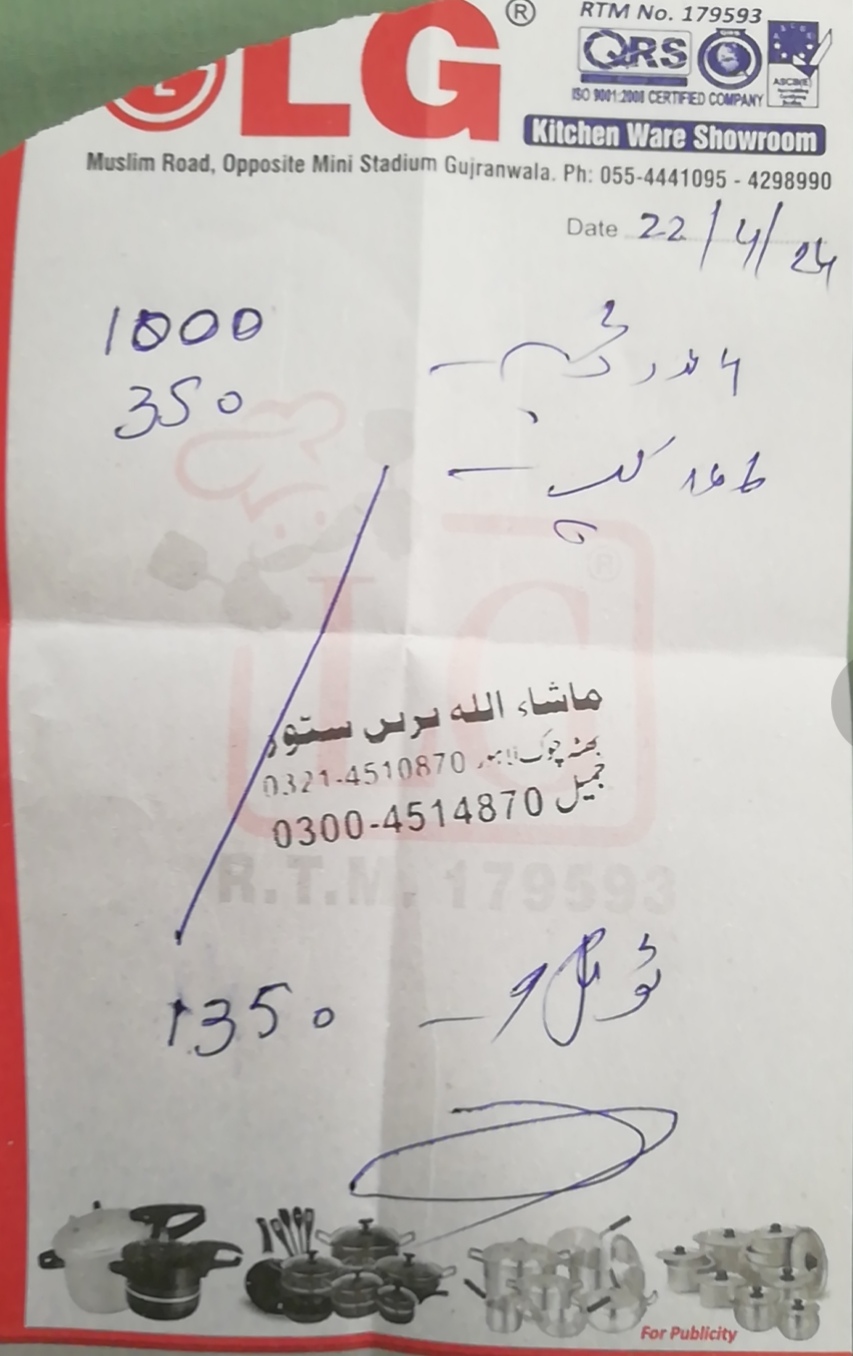 LG ®
RTM No. 179593
QRS
ISO 9001:2008 CERTIFIED COMPANY
ASCB(E)
Kitchen Ware Showroom
Muslim Road, Opposite Mini Stadium Gujranwala. Ph: 055-4441095 - 4298990
Date 22/4/24
1000
350
ماشاء الله برتن ستور
بھٹہ چوک لاہور 0321-4510870
جمیل 0300-4514870
R.T.M. 179593
ٹوٹل 1350
For Publicity